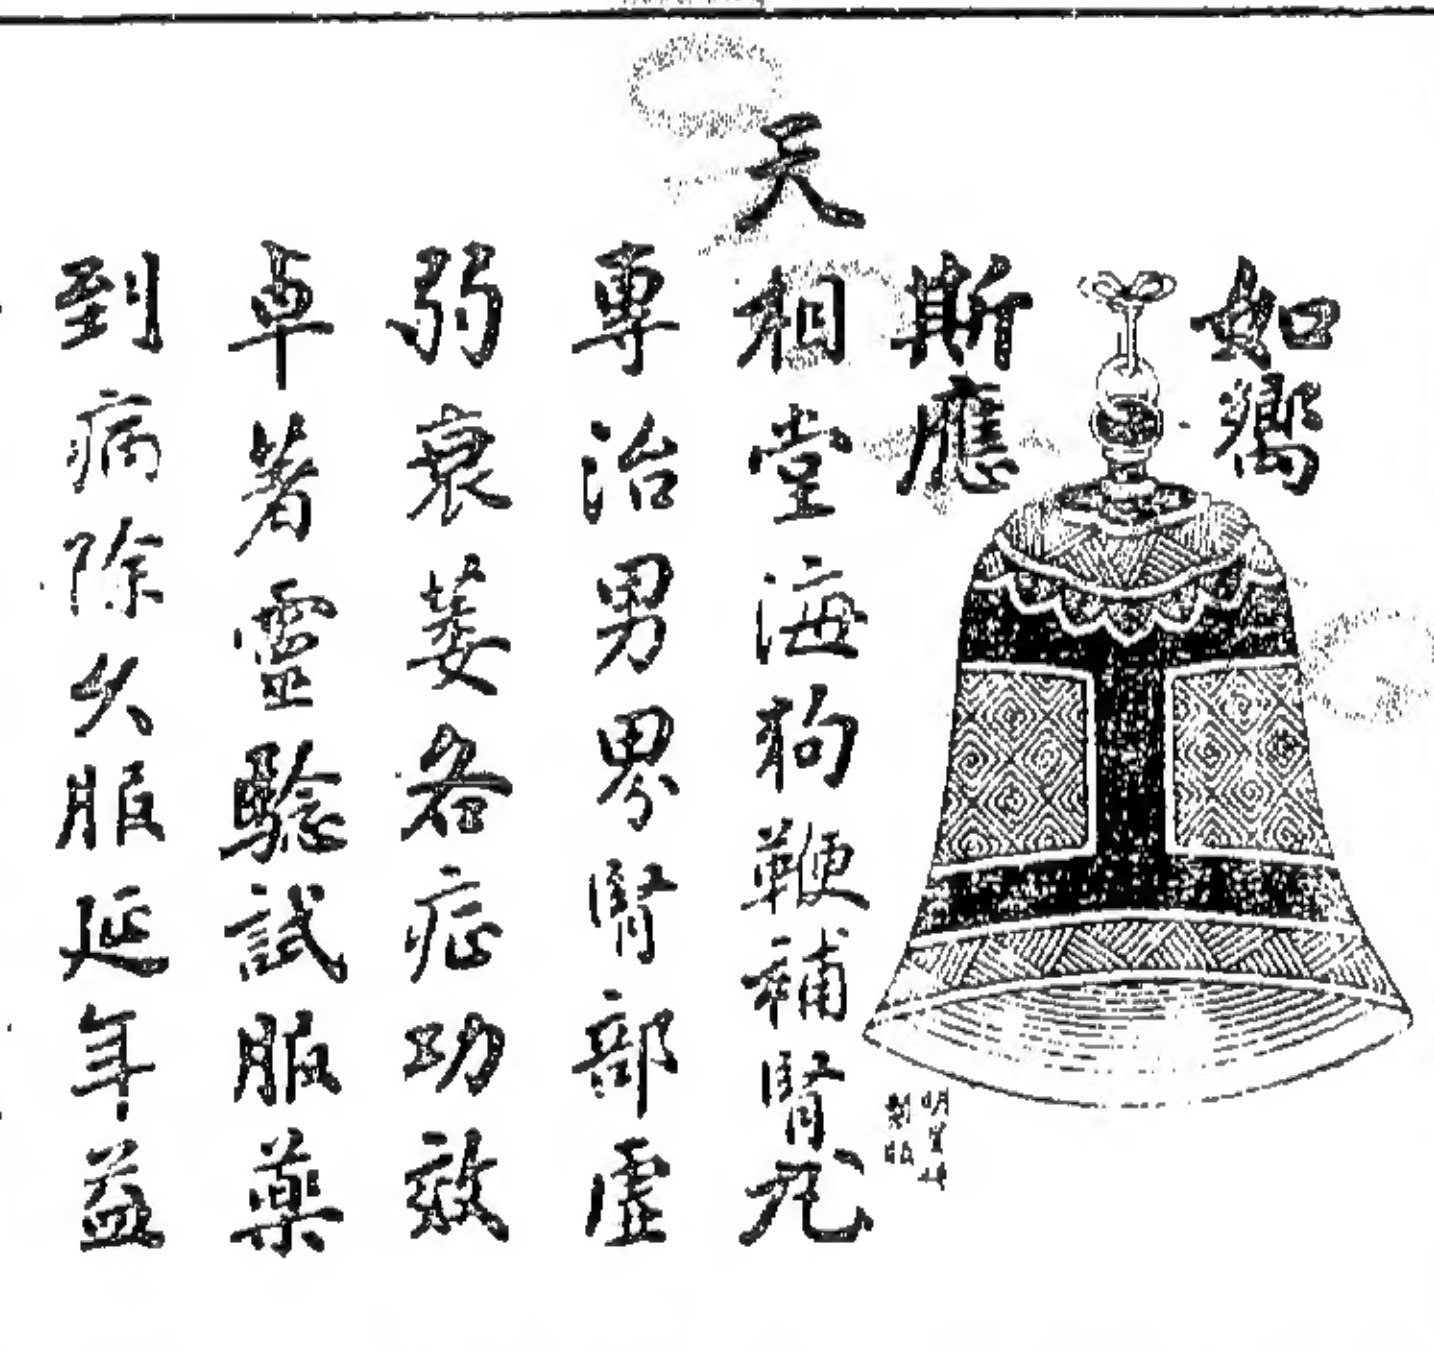 如嚮
斯應
天相堂海狗鞭補腎丸
專治男界腎部虛
弱衰萎各症功效
卓著靈驗試服藥
到病除久服延年益